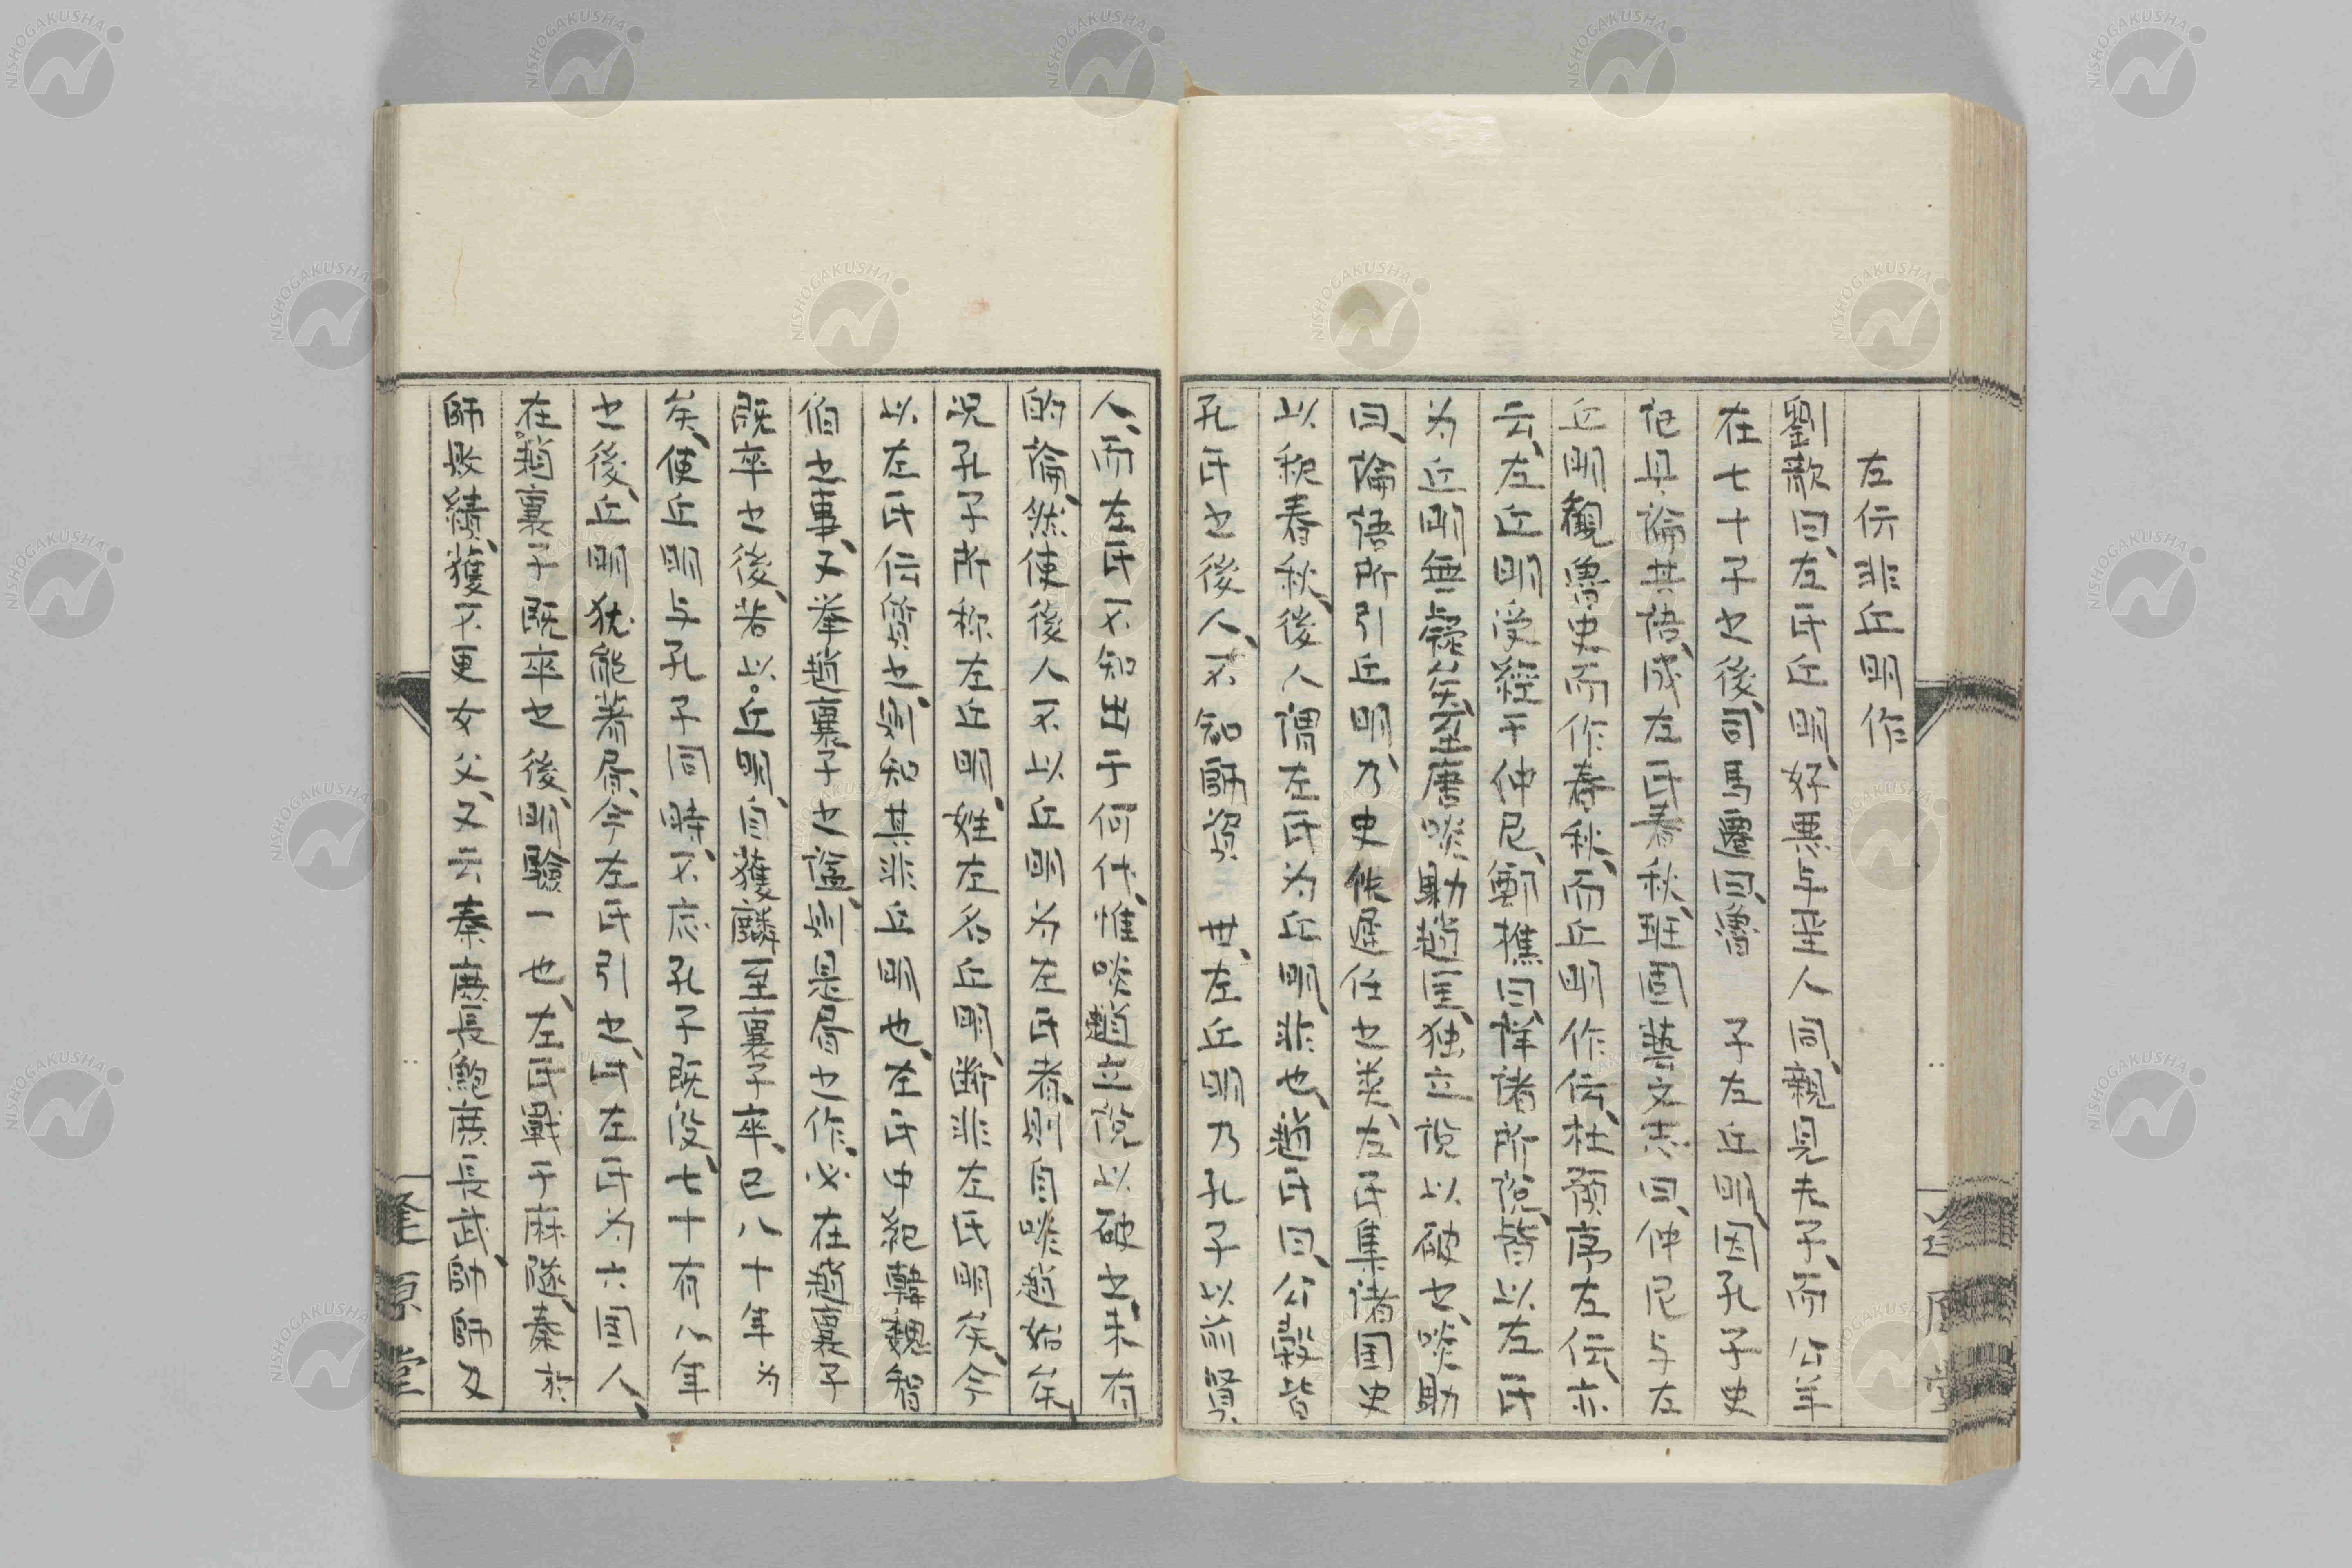 左伝非丘明作
劉歆曰、左氏丘明、好悪与聖人同、親見夫子、而公羊
在七十子之後、司馬遷曰、魯 子左丘明、因孔子史
記具論其語、成左氏春秋、班固藝文志曰、仲尼与左
丘明観魯史而作春秋、而丘明作伝、杜預序左伝、亦
云、左丘明受経于仲尼、鄭樵曰、詳諸所説、皆以左氏
为丘明無疑矣、至唐啖助趙匡、独立説以破之、啖助
曰、論語所引丘明、乃史佚遅任之类、左氏集諸国史
以釈春秋、後人謂左氏为丘明、非也、趙氏曰、公穀皆
孔氏之後人、不知師資 世、左丘明乃孔子以前賢
人、而左氏不知出于何代、惟啖趙立説以破之、未有
的論、然使後人不以丘明为左氏者、則自啖趙始矣、
况孔子所称左丘明、姓左名丘明、断非左氏明矣、今
以左氏伝質之、則知其非丘明也、左氏中紀韓魏智
伯之事、又挙趙襄子之諡、則是昼之作、必在趙襄子
既卒之後、若以丘明、自獲麟至襄子卒、已八十年为
矣、使丘明与孔子同時、不応孔子既没、七十有八年
之後、丘明犹能著昼、今左氏引之、此左氏为六国人、
在趙襄子既卒之後、明験一也、左氏戦于麻隧、秦
師敗績、獲不更女父、又云秦庶長鮑庶長武、帥師及
NISHOGAKUSHA